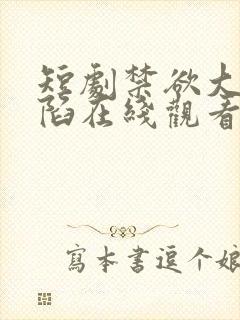 短劇禁欲大
陷在綫觀看
寫本書逗个娘